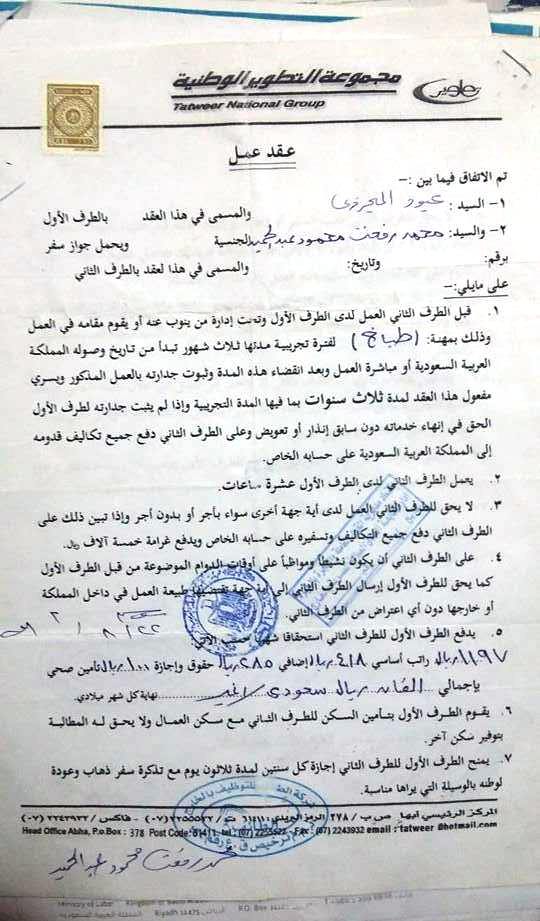 مجموعة التطوير الوطنية
Tatweer National Group
عقد عمل
تم الاتفاق فيما بين :-
١- السيد : والمسمى في هذا العقد بالطرف الأول
٢- والسيد : محمد رفعت محمود عبد الحميد الجنسية ويحمل جواز سفر
برقم: وتاريخ: والمسمى في هذا لعقد بالطرف الثاني
على مايلي:-
١. قبل الطرف الثاني العمل لدى الطرف الأول وتحت إدارة من ينوب عنه أو يقوم مقامه في العمل
وذلك بمهنة: (طباخ) لفترة تجريبية مدتها ثلاث شهور تبدأ من تاريخ وصوله المملكة
العربية السعودية أو مباشرة العمل وبعد انقضاء هذه المدة وثبوت جدارته بالعمل المذكور ويسري
مفعول هذا العقد لمدة ثلاث سنوات بما فيها المدة التجريبية وإذا لم يثبت جدارته لطرف الأول
الحق في إنهاء خدماته دون سابق إنذار أو تعويض وعلى الطرف الثاني دفع جميع تكاليف قدومه
إلى المملكة العربية السعودية على حسابه الخاص.
٢. يعمل الطرف الثاني لدى الطرف الأول عشرة ساعات.
٣. لا يحق للطرف الثاني العمل لدى أية جهة أخرى سواء بأجر أو بدون أجر وإذا تبين ذلك على
الطرف الثاني دفع جميع التكاليف وتسفيره على حسابه الخاص ويدفع غرامة خمسة آلاف ريال.
٤. على الطرف الثاني أن يكون نشيطاً ومواظباً على أوقات الدوام الموضوعة من قبل الطرف الأول
كما يحق للطرف الأول إرسال الطرف الثاني إلى أية جهة تقتضيها طبيعة العمل في داخل المملكة
أو خارجها دون أي اعتراض من الطرف الثاني.
٥. يدفع الطرف الأول للطرف الثاني استحقاقا شهريا حسب الآتي
١١٩٧ ريال راتب أساسي ٤١٨ ريال إضافي ٢٨٥ ريال حقوق وإجازة ١٠٠ ريال تأمين صحي
بإجمالي ألفان ريال سعودي لا غير نهاية كل شهر ميلادي.
٦. يقوم الطرف الأول بتأمين السكن للطرف الثاني مع سكن العمال ولا يحق له المطالبة
بتوفير سكن آخر.
٧. يمنح الطرف الأول للطرف الثاني إجازة كل سنتين لمدة ثلاثون يوم مع تذكرة سفر ذهاب وعودة
لوطنه بالوسيلة التي يراها مناسبة.
المركز الرئيسي أبها ص ب / ٣٧٨ الرمز البريدي / ٦١٤١١ ت / ٢٢٥٥٥٢٢ (٠٧) - فاكس / ٢٢٤٣٩٣٢ (٠٧)
Head Office Abha, P.o.Box : 378 Post Code: 61411, tel (07) 2255522 Fax: (07) 2243932 email : tatweer @hotmail.com
محمد رفعت محمود عبد الحميد